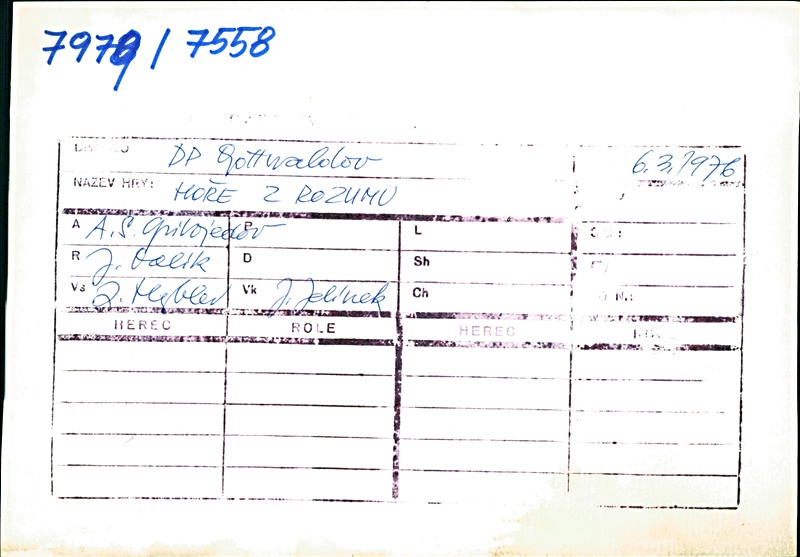 7979 / 7558
DIVADLO DP Gottwaldov 6.3.1976
NÁZEV HRY: HOŘE Z ROZUMU
A A.S. Gribojedov P L
R J. Valík D Sh
Vs Vk J. Jelínek Ch
HEREC ROLE HEREC